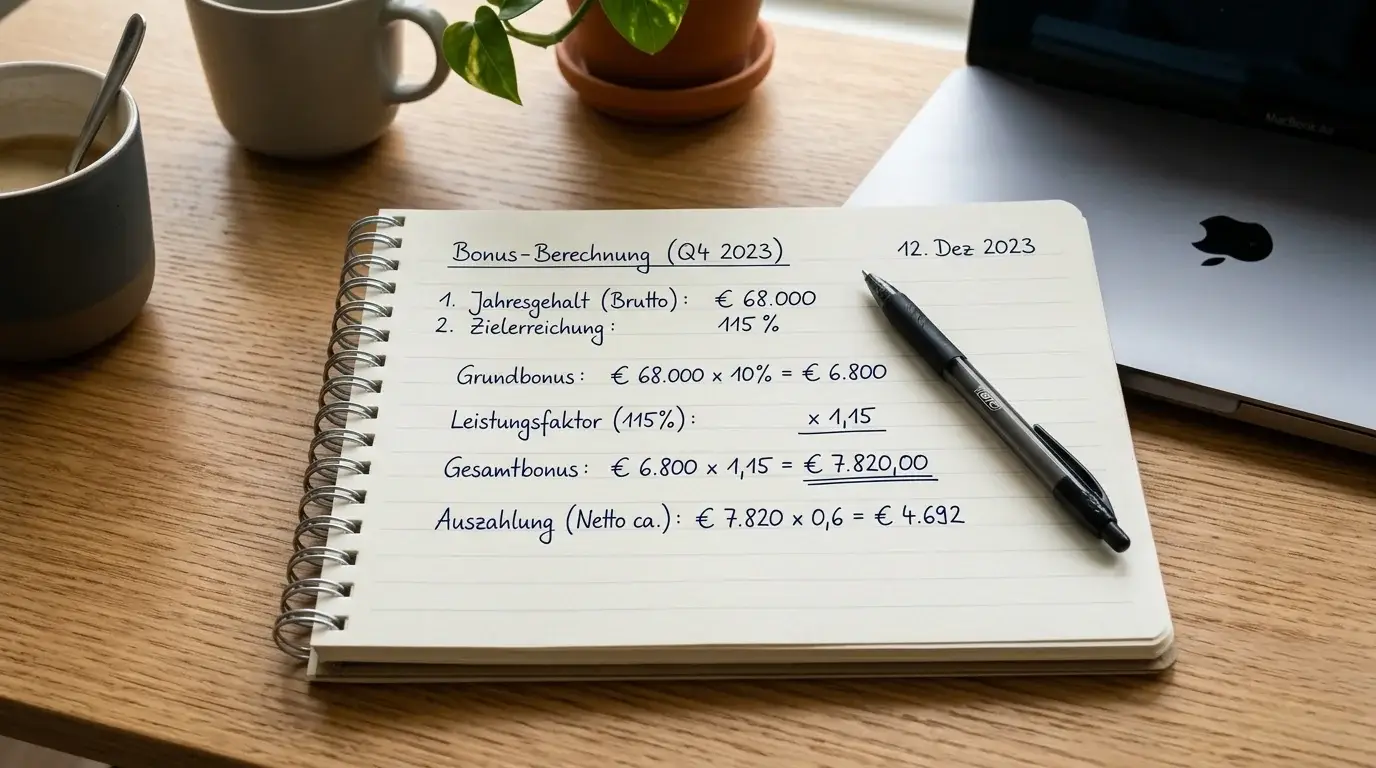 MacBook Air
Bonus-Berechnung (Q4 2023) 12. Dez 2023
1. Jahresgehalt (Brutto): € 68.000
2. Zielerreichung: 115 %
Grundbonus: € 68.000 × 10% = € 6.800
Leistungsfaktor (115%): × 1,15
Gesamtbonus: € 6.800 × 1,15 = € 7.820,00
Auszahlung (Netto ca.): € 7.820 × 0,6 = € 4.692